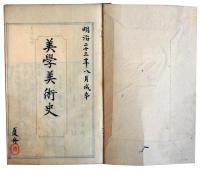 明治二十三年八月成本
美學美術史